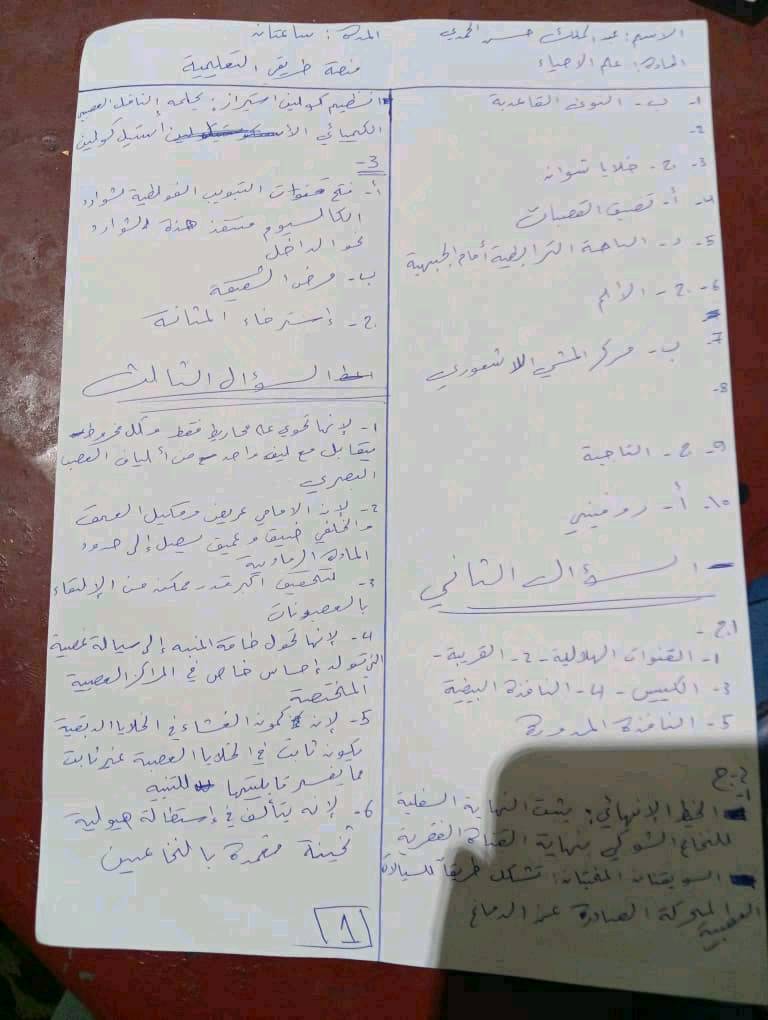 الاسم: عبد الملك حسن الحمدي
المدة: ساعتان
المادة: علم الاحياء
منصة طريقي التعليمية
1- ب- النوى القاعدية
2-
3- ج- خلايا شوانه
4- أ- تضيق القصبات
5- د- الباحة الترابطية أمام الجبهية
6- ج- الألم
7- ب- مركز المشي اللاشعوري
8-
9- ج- التاجية
10- أ- روفيني
السؤال الثاني
ج1-
1- القنوات الهلالية - 2- القريبة -
3- الكييس - 4- النافذة البيضية
5- النافذة المدورة
ج2-
1- الخيط الإنتهائي: يثبت النهاية السفلية
للنخاع الشوكي بنهاية القناة الفقرية
السويقتان المخيتان: تشكل طريقاً للسيالات
العصبية المحركة الصادرة عن الدماغ
انظيم كولين استيراز: يحلمه الناقل العصبي
الكيميائي الأستيل كولين
3-
أ- فتح قنوات التبويب الفولطية لشوارد
الكالسيوم فتنفذ هذه الشوارد
نحو الداخل
ب- مرض الشقيقة
ج- إسترخاء المثانة
السؤال الثالث
1- لإنها تحوي على مخاريط فقط وكل مخروط
يتقابل مع ليف واحد من ألياف العصب
البصري
2- لإن الامامي عريض وقليل العمق
والخلفي ضيق وعميق يصل إلى حدود
المادة الرمادية
3- لتحقيق أكبر قدر ممكن من الإلتقاء
بالعصبونات
4- لإنها تحول طاقة المنبه إلى سيالة عصبية
التي تولد إحساس خاص في المراكز العصبية
المختصة
5- لإن كمون الغشاء في الخلايا الدبقية
يكون ثابت في الخلايا العصبية غير ثابت
مما يفسر قابليتها للتنبيه
6- لإنه يتألف في إستطالة هيولية
ثخينة مغمدة بالنخاعين
1